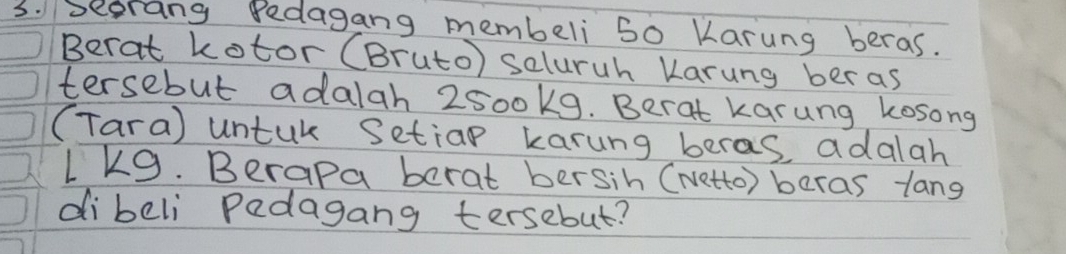 3. Seorang Pedagang membeli 50 Karung beras.
Berat kotor (Bruto) seluruh karung beras
tersebut adalah 2500 kg. Berat karung kosong
(Tara) untuk setiap karung beras, adalah
1 kg. Berapa berat bersih (Netto) beras yang
di beli Pedagang tersebut?